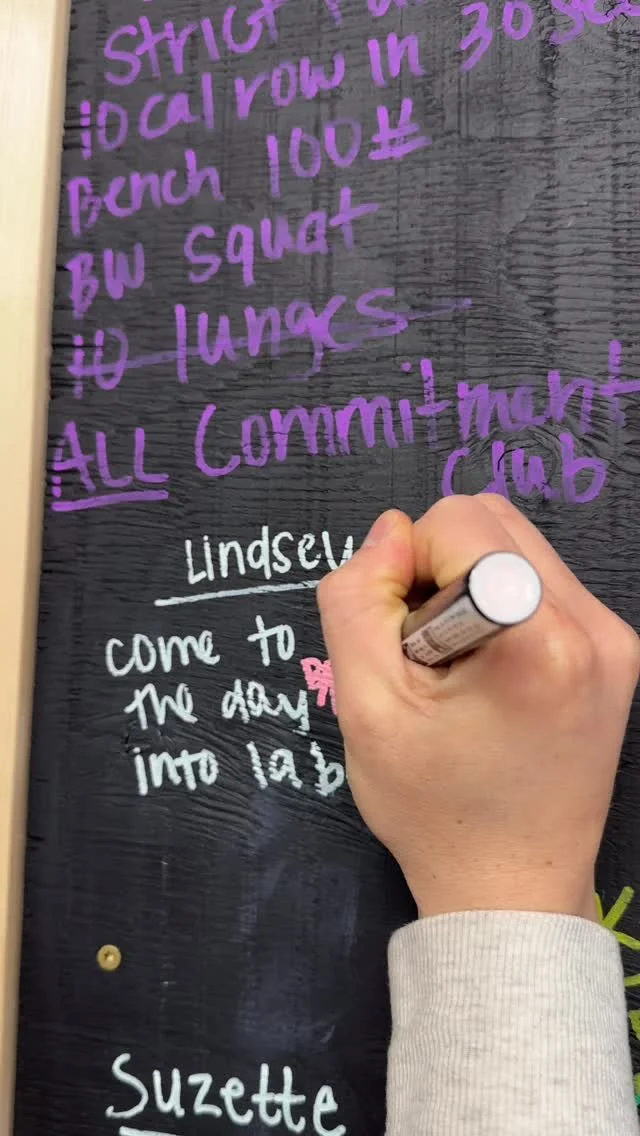 Strict
10 cal row in 30 sec
Bench 100#
BW squat
10 lunges
ALL Commitment
Club
Lindsey
come to
the day
into lab
Suzette